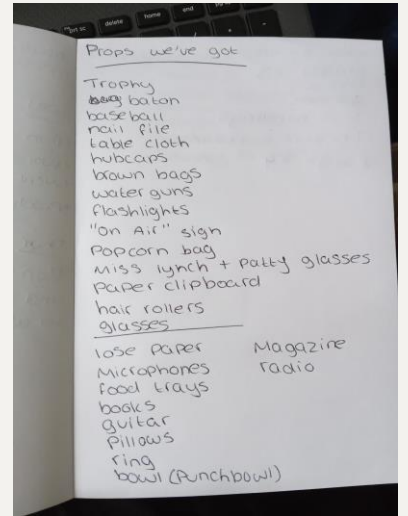 delete
home
end
Props we've got
Trophy
baton
baseball
nail file
table cloth
hubcaps
brown bags
water guns
flashlights
"On Air" sign
Popcorn bag
Miss lynch + Patty glasses
Paper clipboard
hair rollers
glasses
lose paper Magazine
Microphones radio
food trays
books
guitar
Pillows
ring
bowl (Punchbowl)